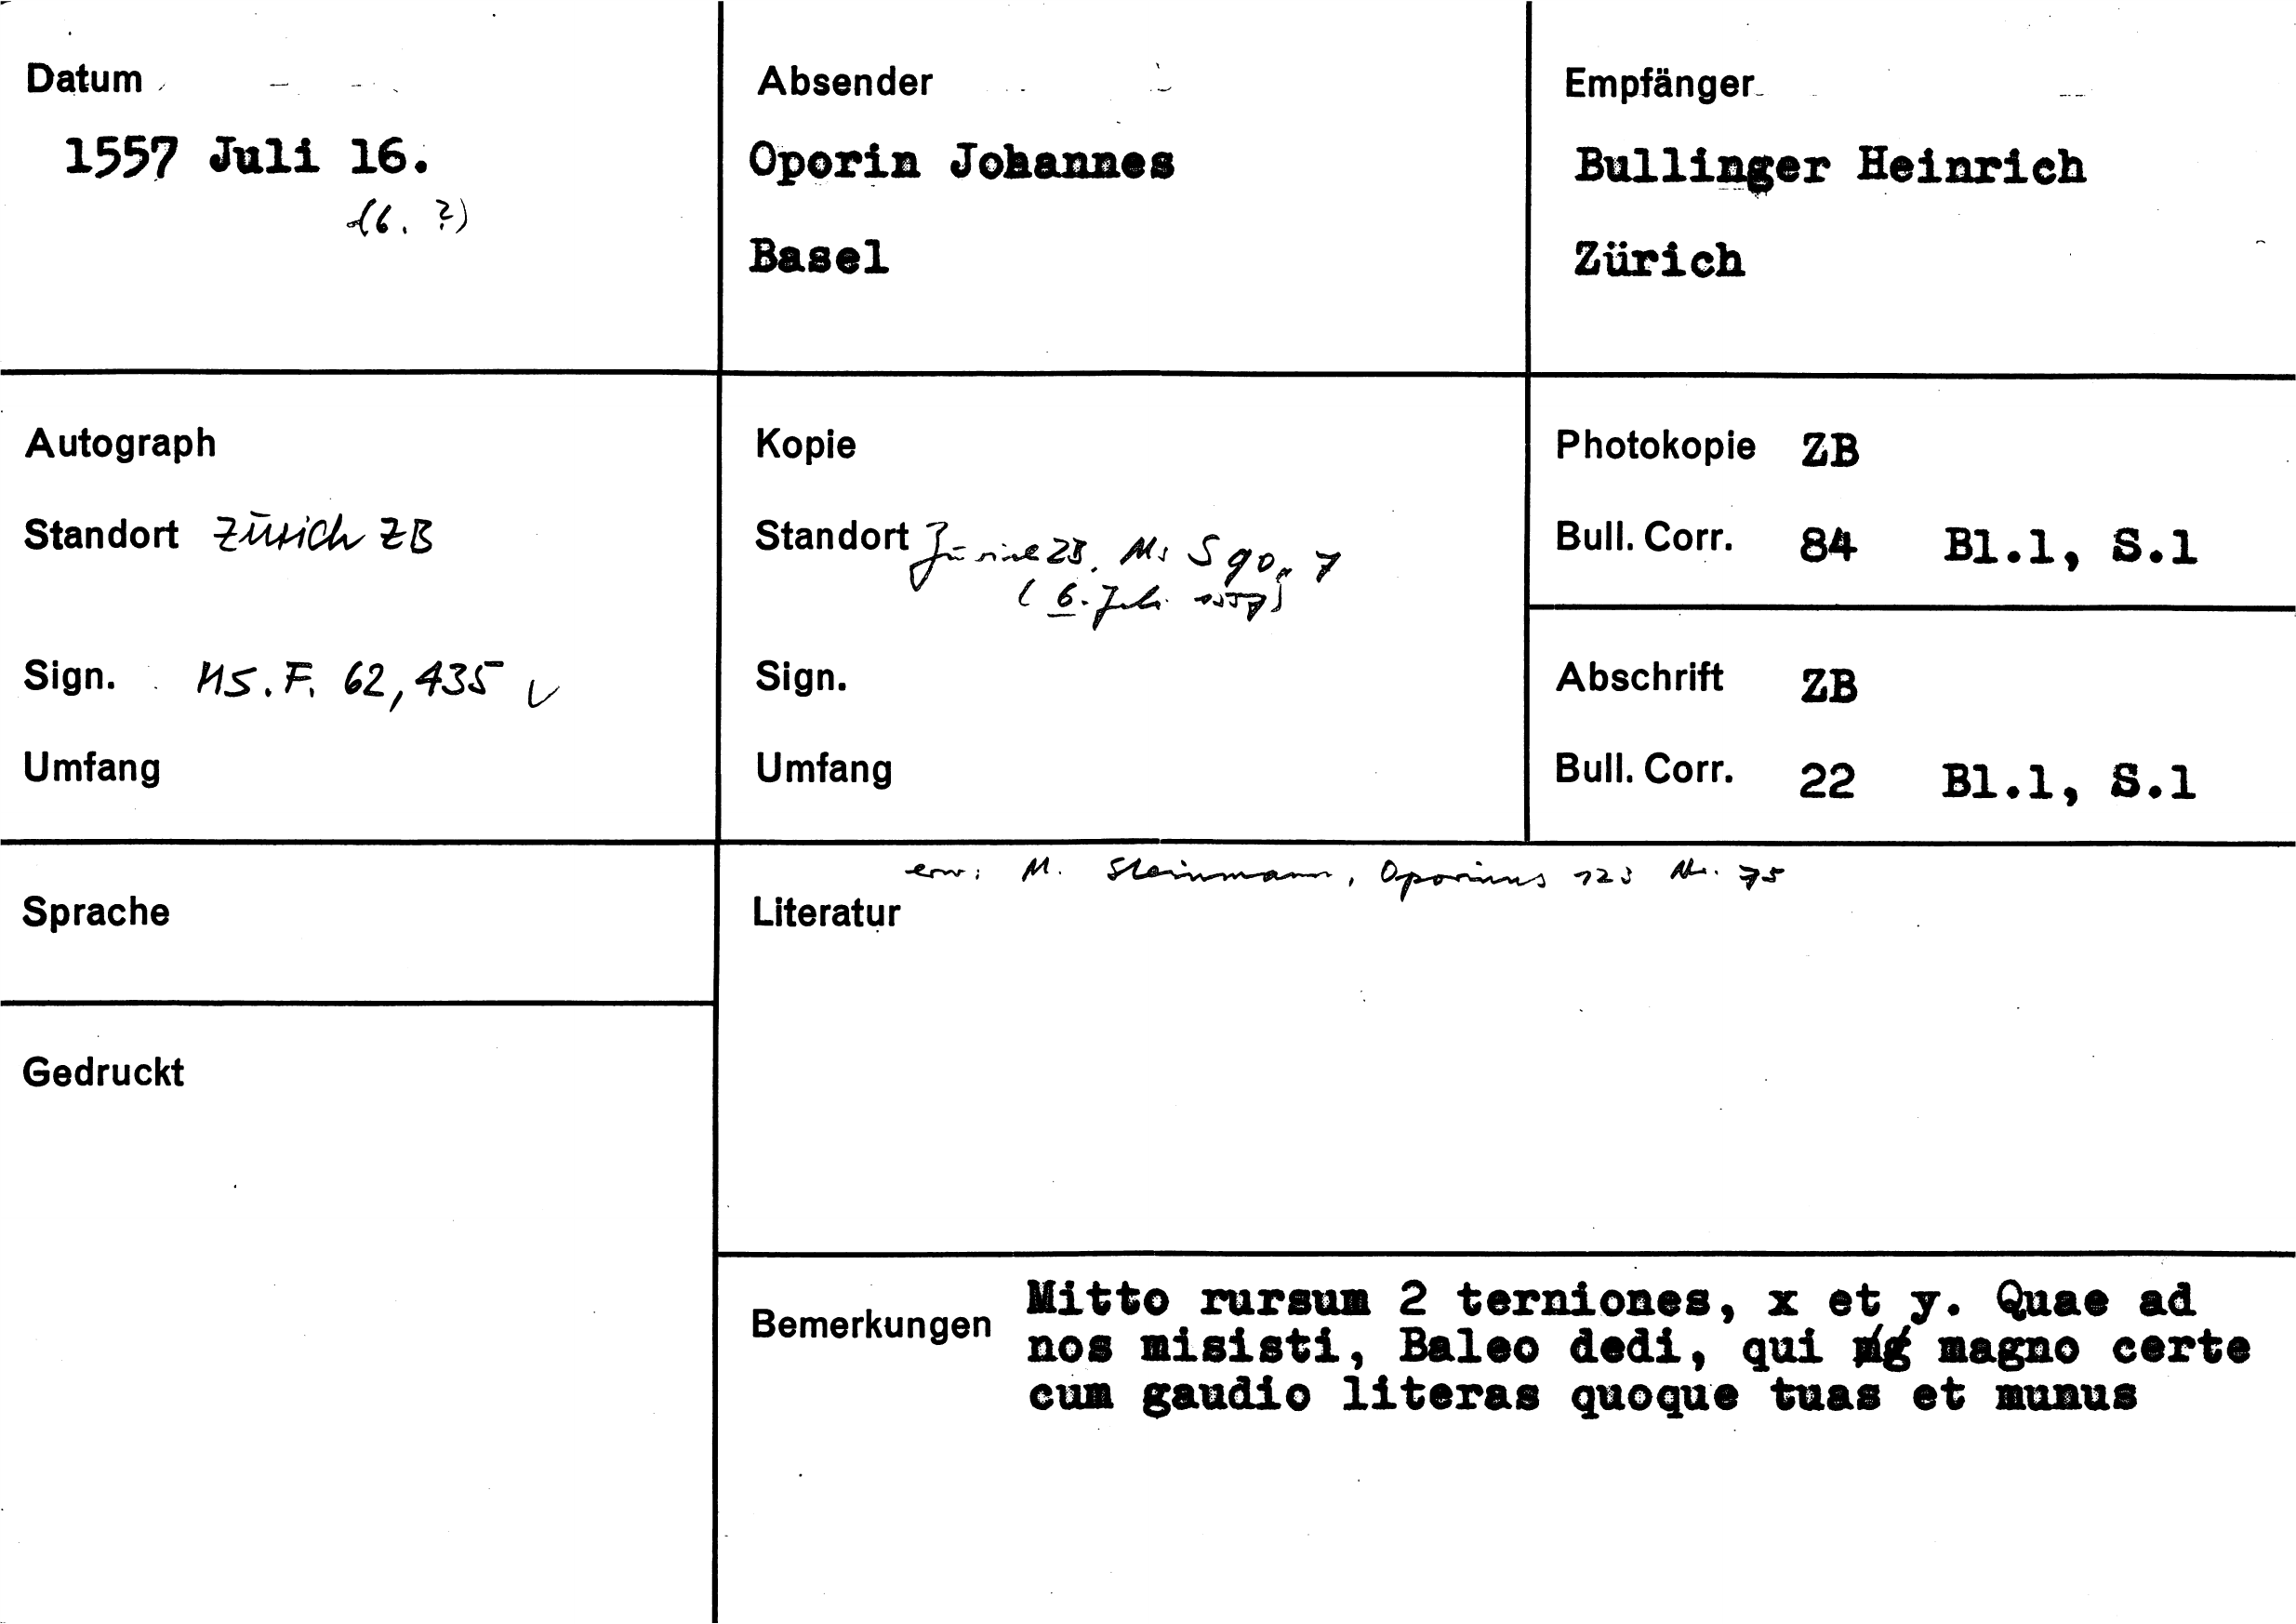 Datum
1557 Juli 16.
(6. ?)
Absender
Oporin Johannes
Basel
Empfänger
Bullinger Heinrich
Zürich
Autograph
Standort Zürich ZB
Sign. MS. F. 62, 435 v
Umfang
Kopie
Standort Zürich ZB. Ms S 90, 7
(6. Juli 1557)
Sign.
Umfang
Photokopie ZB
Bull. Corr. 84 Bl.1, S.1
Abschrift ZB
Bull. Corr. 22 Bl.1, S.1
Sprache
Gedruckt
erw: M. Steinmann, Oporinus 123 Nr. 75
Literatur
Bemerkungen
Mitto rursum 2 terniones, x et y. Quae ad
nos misisti, Baleo dedi, qui magno certe
cum gaudio literas quoque tuas et munus